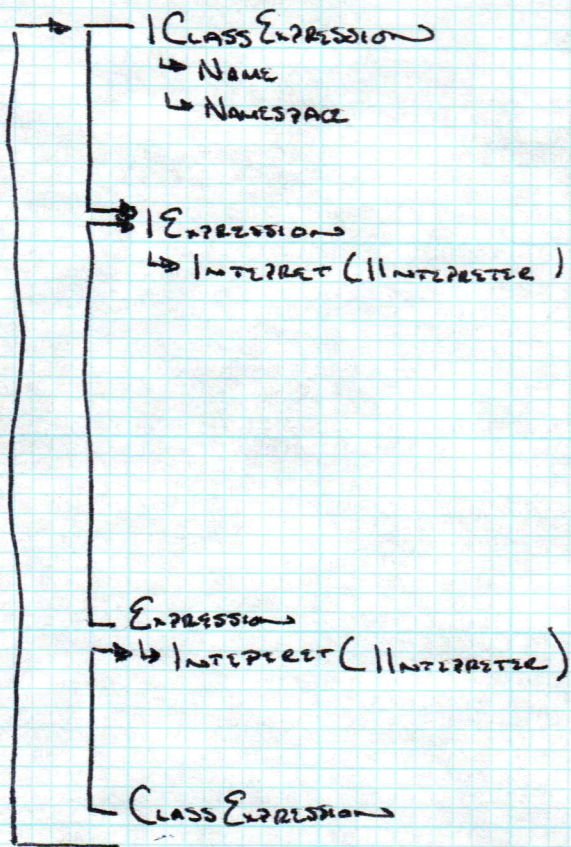 IClassExpression
↳ Name
↳ Namespace
IExpression
↳ Intepret (IIntepreter)
Expression
↳ Inteperet (IIntepreter)
ClassExpression